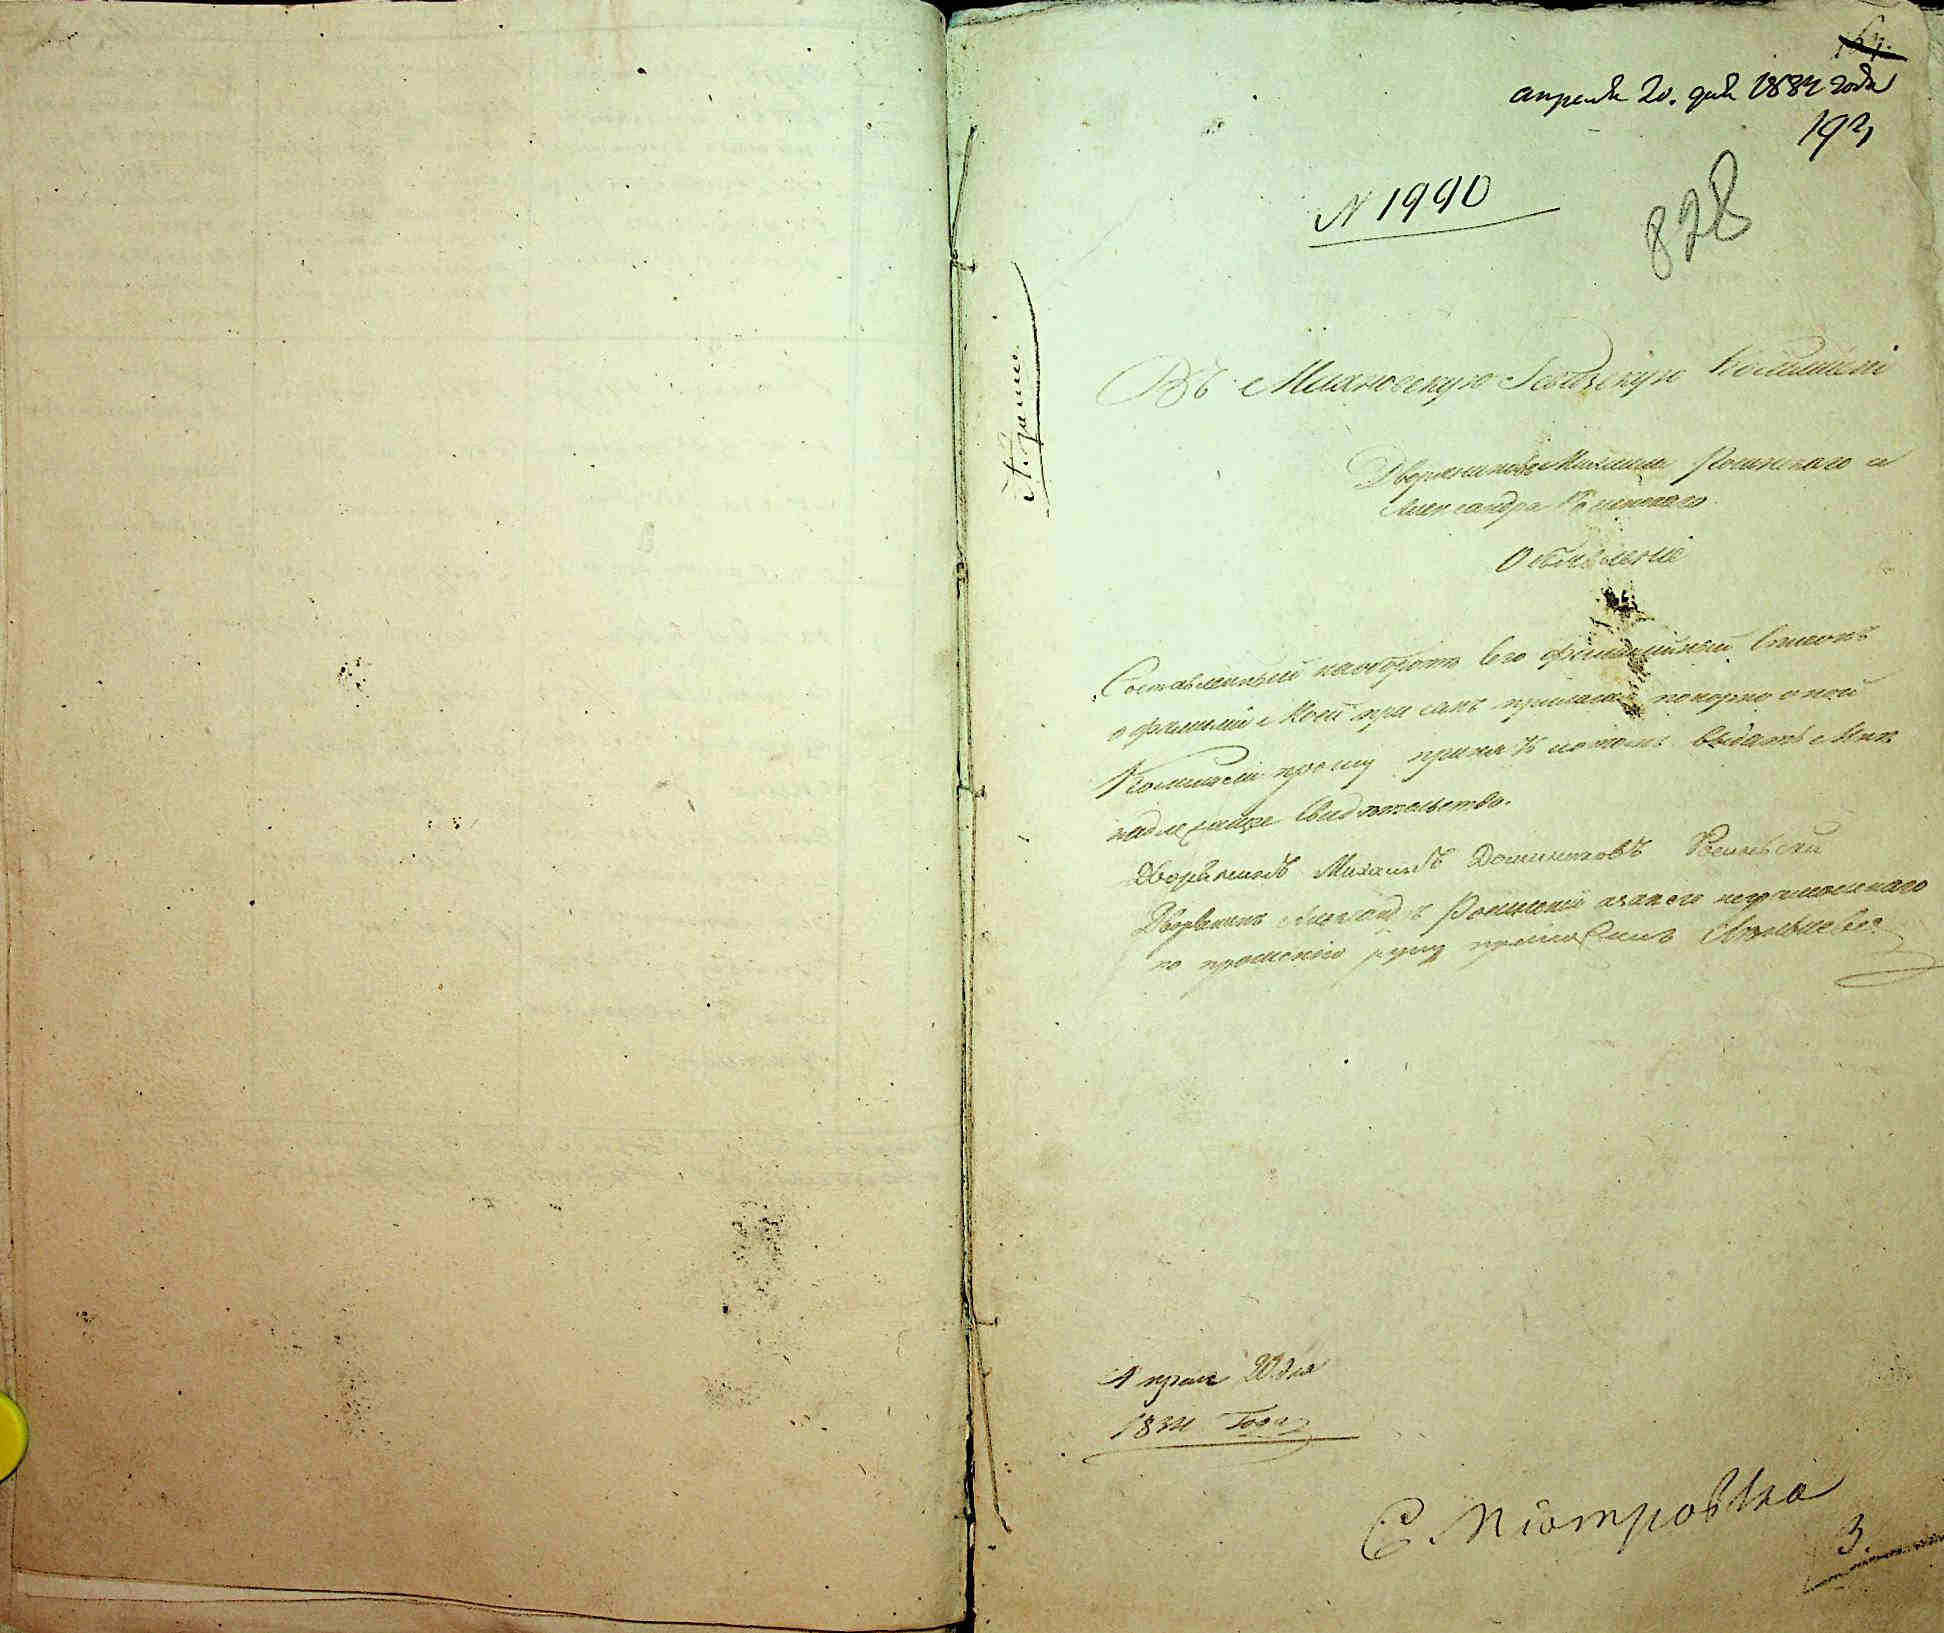 апреля 20. дня 1834 года
193
N 1990
828
Въ Махновскую Ревизскую Коммисію
Дворянина Михаила Росинского и
Александра Росинского
Объявленіе
Составленный наоборотѣ сего фамилійный Списокъ
о фамиліи моей при семъ прилагая покорно оной
Коммисіи прошу принять и потомъ выдать мнѣ
надлежащее Свидѣтельство.
Дворянинъ Михаилъ Доминиковъ Росиньский
Дворянинъ Александръ Росинский а за него неграмотнаго
по прошенію руку приложилъ
Апреля 20 дня
1834 Года
С. Піотровка
3.